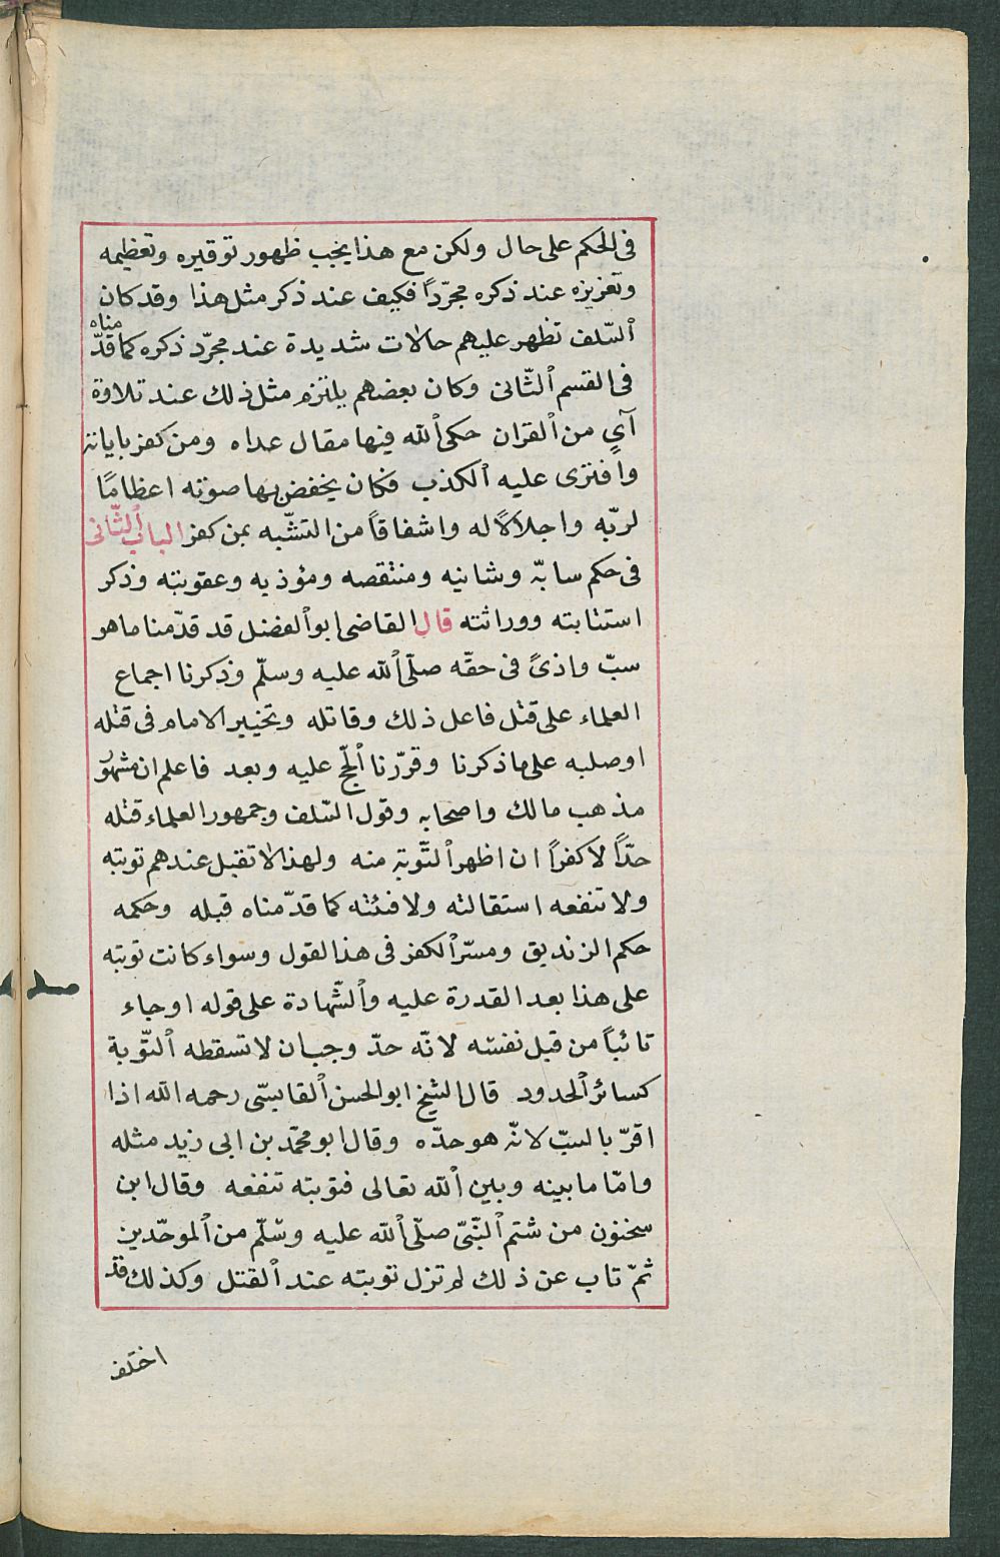 فى الحكم على حال ولكن مع هذا يجب ظهور توقيره وتعظيمه
وتعزيزه عند ذكره مجرّداً فكيف عند ذكر مثل هذا وقد كان
السّلف تظهر عليهم حالات شديدة عند مجرّد ذكره كما قدّمناه
فى القسم الثّانى وكان بعضهم يلتزم مثل ذلك عند تلاوة
آي من القران حكى الله فيها مقال عداه ومن كفر باياته
وافترى عليه الكذب فكان يخفض بها صوته اعظامًا
لربّه واجلالاً له واشفاقاً من التشّبه بمن كفر الباب الثّانى
فى حكم سابّه وشانيه ومنتقصه ومؤذيه وعقوبته وذكر
استتابته ووراثته قال القاضى ابو الفضل قد قدّمنا ما هو
سبّ واذىً فى حقّه صلّى الله عليه وسلّم وذكرنا اجماع
العلماء على قتل فاعل ذلك وقاتله وتخيير الامام فى قتله
اوصلبه على ما ذكرنا وقرّرنا الحجّ عليه وبعد فاعلم ان مشهور
مذهب مالك واصحابه وقول السّلف وجمهور العلماء قتله
حدّاً لا كفراً ان اظهر التّوبة منه ولهذا لا تقبل عندهم توبته
ولا تنفعه استقالته ولا فئته كما قدّمناه قبله وحكمه
حكم الزنديق ومسرّ الكفر فى هذا القول وسواء كانت توبته
على هذا بعد القدرة عليه والشّهادة على قوله اوجاء
تائباً من قبل نفسه لانّه حدّ وجب ان لا تسقطه التّوبة
كسائر الحدود قال الشيخ ابو الحسن القابسّى رحمه الله اذا
اقرّ بالسبّ لانّه هو حدّه وقال ابو محمّد بن ابى زيد مثله
وامّا ما بينه وبين الله تعالى فتوبته تنفعه وقال ابن
سحنون من شتم النّبىّ صلّى الله عليه وسّلّم من الموحّدين
ثمّ تاب عن ذلك لم تزل توبته عند القتل وكذلك قد
اختلف